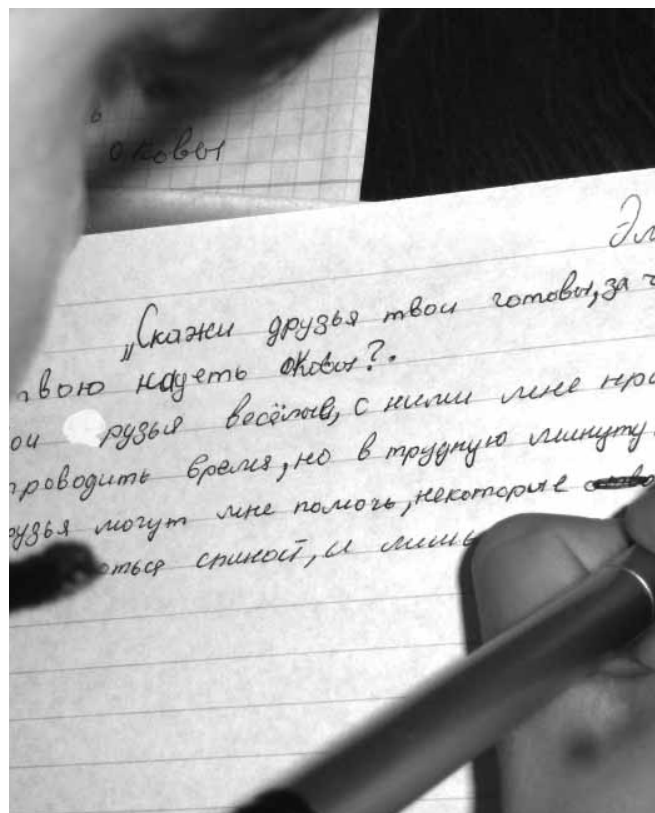 ь
оковы
Эл
„Скажи друзья твои готовы, за ч
твою надеть оковы?.
ои рузья весёлые, с ними мне нра
проводить время, но в трудную минуту
рузья могут мне помочь, некоторые
оться спиной, и лишь